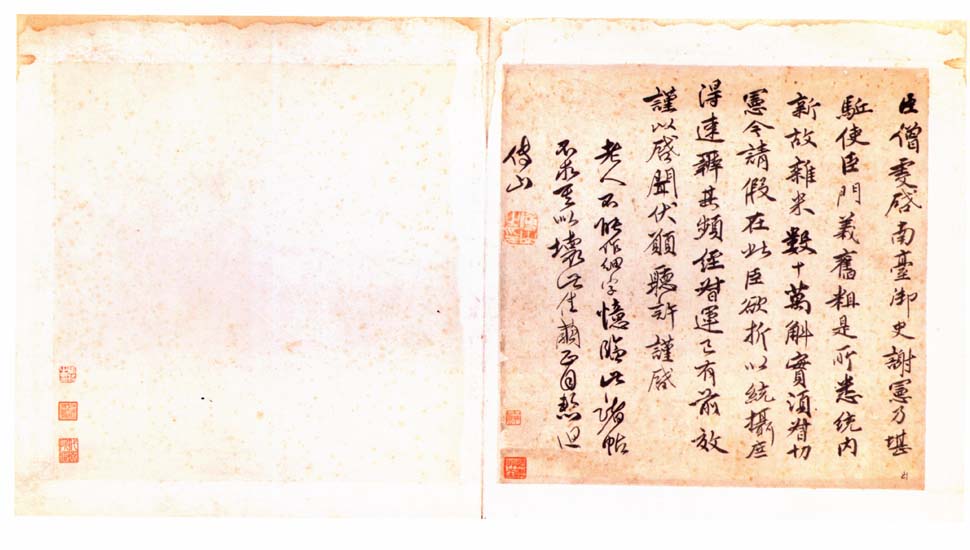 臣僧虔啓南臺御史謝憲乃堪
駈使臣門義舊粗是所悉統内
新故雜米數十萬斛實須督切
憲今請假在此臣欲折以統攝庶
得速辦其頻經督運已有前效
謹以啓聞伏願聽許謹啓
老人不能作細字憶臨此帖
不求其似壞此佳繭正自愁
傅山